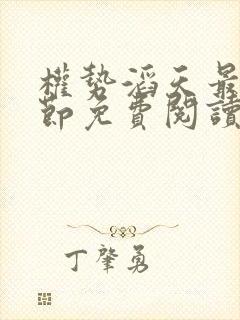 權勢滔天最
節免費閱讀
丁肇勇